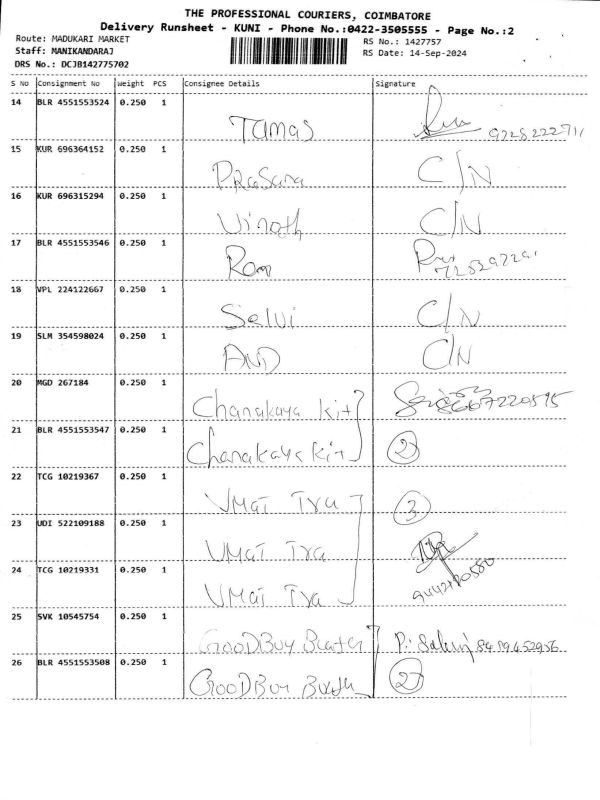 THE PROFESSIONAL COURIERS, COIMBATORE
Delivery Runsheet - KUNI - Phone No.:0422-3505555 - Page No.:2
Route: MADUKARI MARKET
RS No.: 1427757
Staff: MANIKANDARAJ
RS Date: 14-Sep-2024
DRS No.: DCJB142775702
S No Consignment No Weight PCS Consignee Details Signature
14 BLR 4551553524 0.250 1 Tamas
15 KUR 696364152 0.250 1 Prasana C/N
16 KUR 696315294 0.250 1 Vinoth C/N
17 BLR 4551553546 0.250 1 Ram
18 VPL 224122667 0.250 1 Selvi C/N
19 SLM 354598024 0.250 1 AND C/N
20 MGD 267184 0.250 1 Chanakaya Kit
21 BLR 4551553547 0.250 1 Chanakaya Kit 2
22 TCG 10219367 0.250 1 UMaT Tra 3
23 UDI 522109188 0.250 1 UMaT Tra
24 TCG 10219331 0.250 1 UMaT Tra
25 SVK 10545754 0.250 1 GooDBuy
26 BLR 4551553508 0.250 1 GooDBuy 2